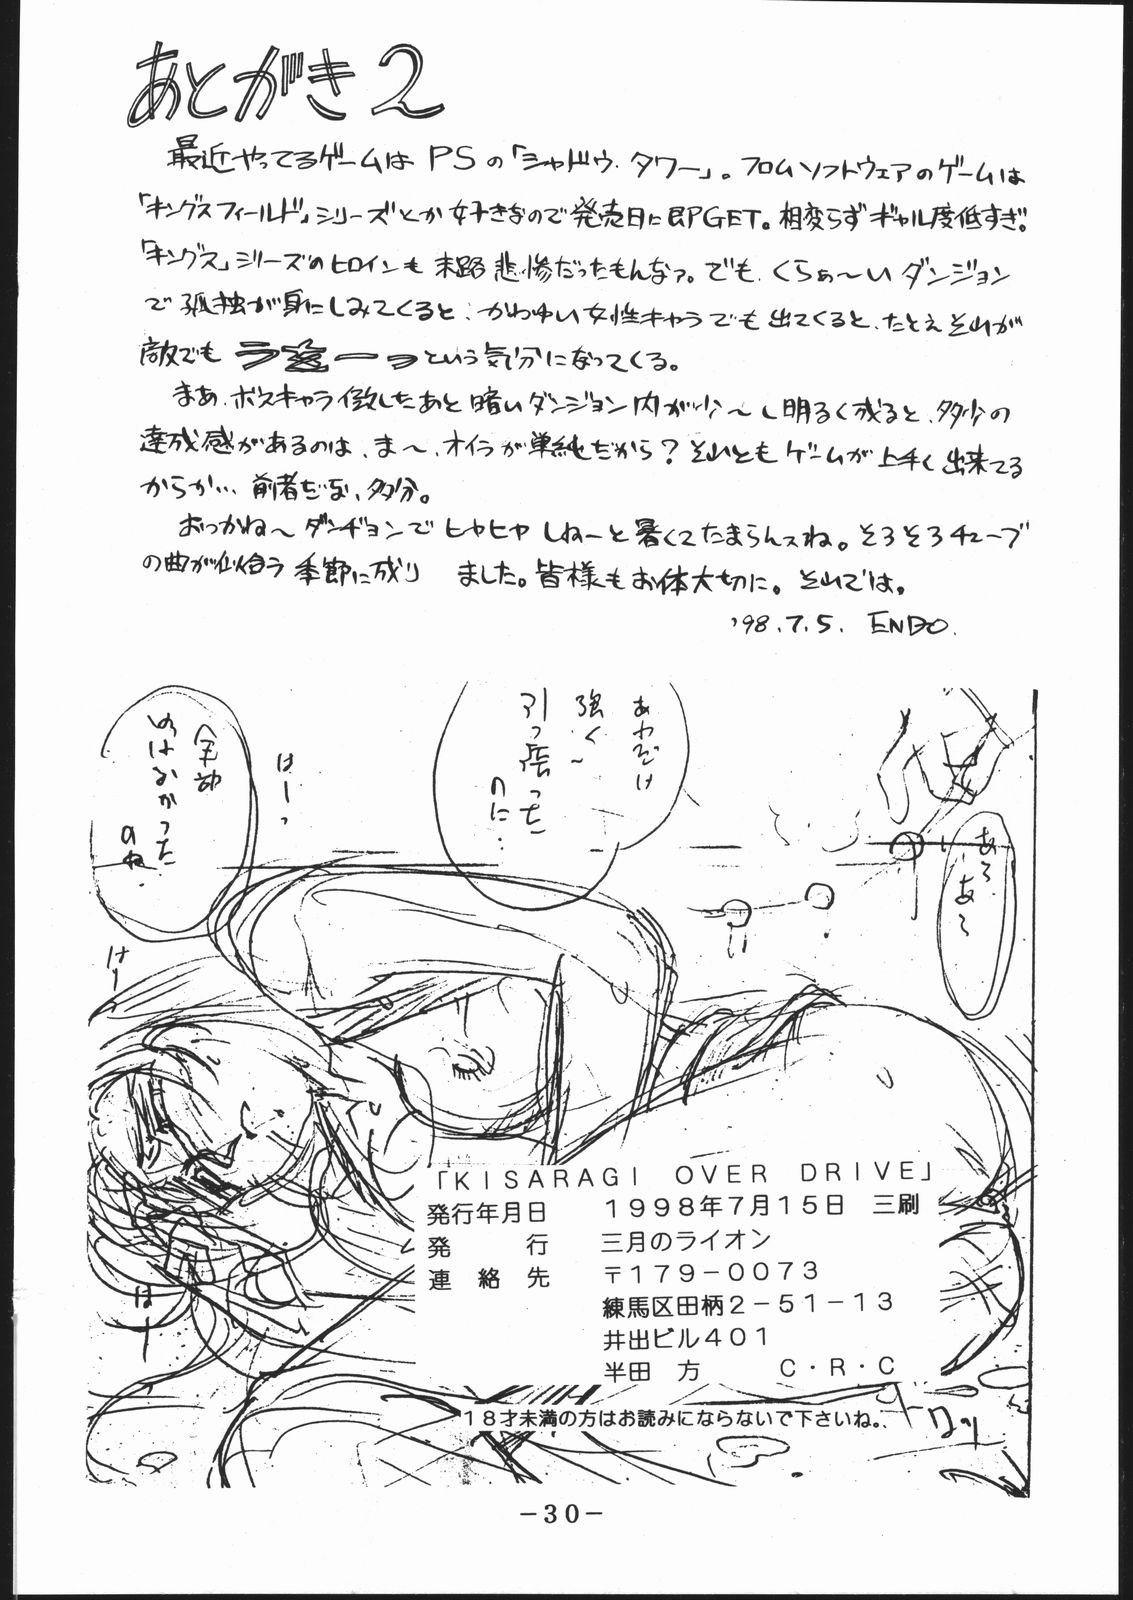 あとがき2
最近やってるゲームはPSの「シャドウ・タワー」。フロムソフトウェアのゲームは
「キングスフィールド」シリーズとか好きなので発売日に即GET。相変らずギャル度低すぎ。
「キングス」シリーズのヒロインも末路悲惨だったもんなァ。でも、くらぁ〜いダンジョン
で孤独が身にしみてくると、かわゆい女性キャラでも出てくると、たとえそれが
敵でも という気分になってくる。
まあ、ボスキャラ倒したあと暗いダンジョン内が少〜し明るく成ると、多少の
達成感があるのは、ま〜、オイラが単純だから?それともゲームが上手く出来てる
からか…前者だな、多分。
おっかね〜ダンヂョンでヒヤヒヤしねーと暑くてたまらんスね。そろそろチューブ
の曲が似合う季節に成りました。皆様もお体大切に。それでは。
'98.7.5. ENDO.
あれだけ
強く〜
引っ張った
のに…
はーっ
全部
のはなかった
のね.
あろ
あ〜
はーっ
はーっ
「KISARAGI OVER DRIVE」
発行年月日 1998年7月15日 三刷
発行 三月のライオン
連絡先 〒179-0073
練馬区田柄2-51-13
井出ビル401
半田 方 C・R・C
18才未満の方はお読みにならないで下さいね。
-30-